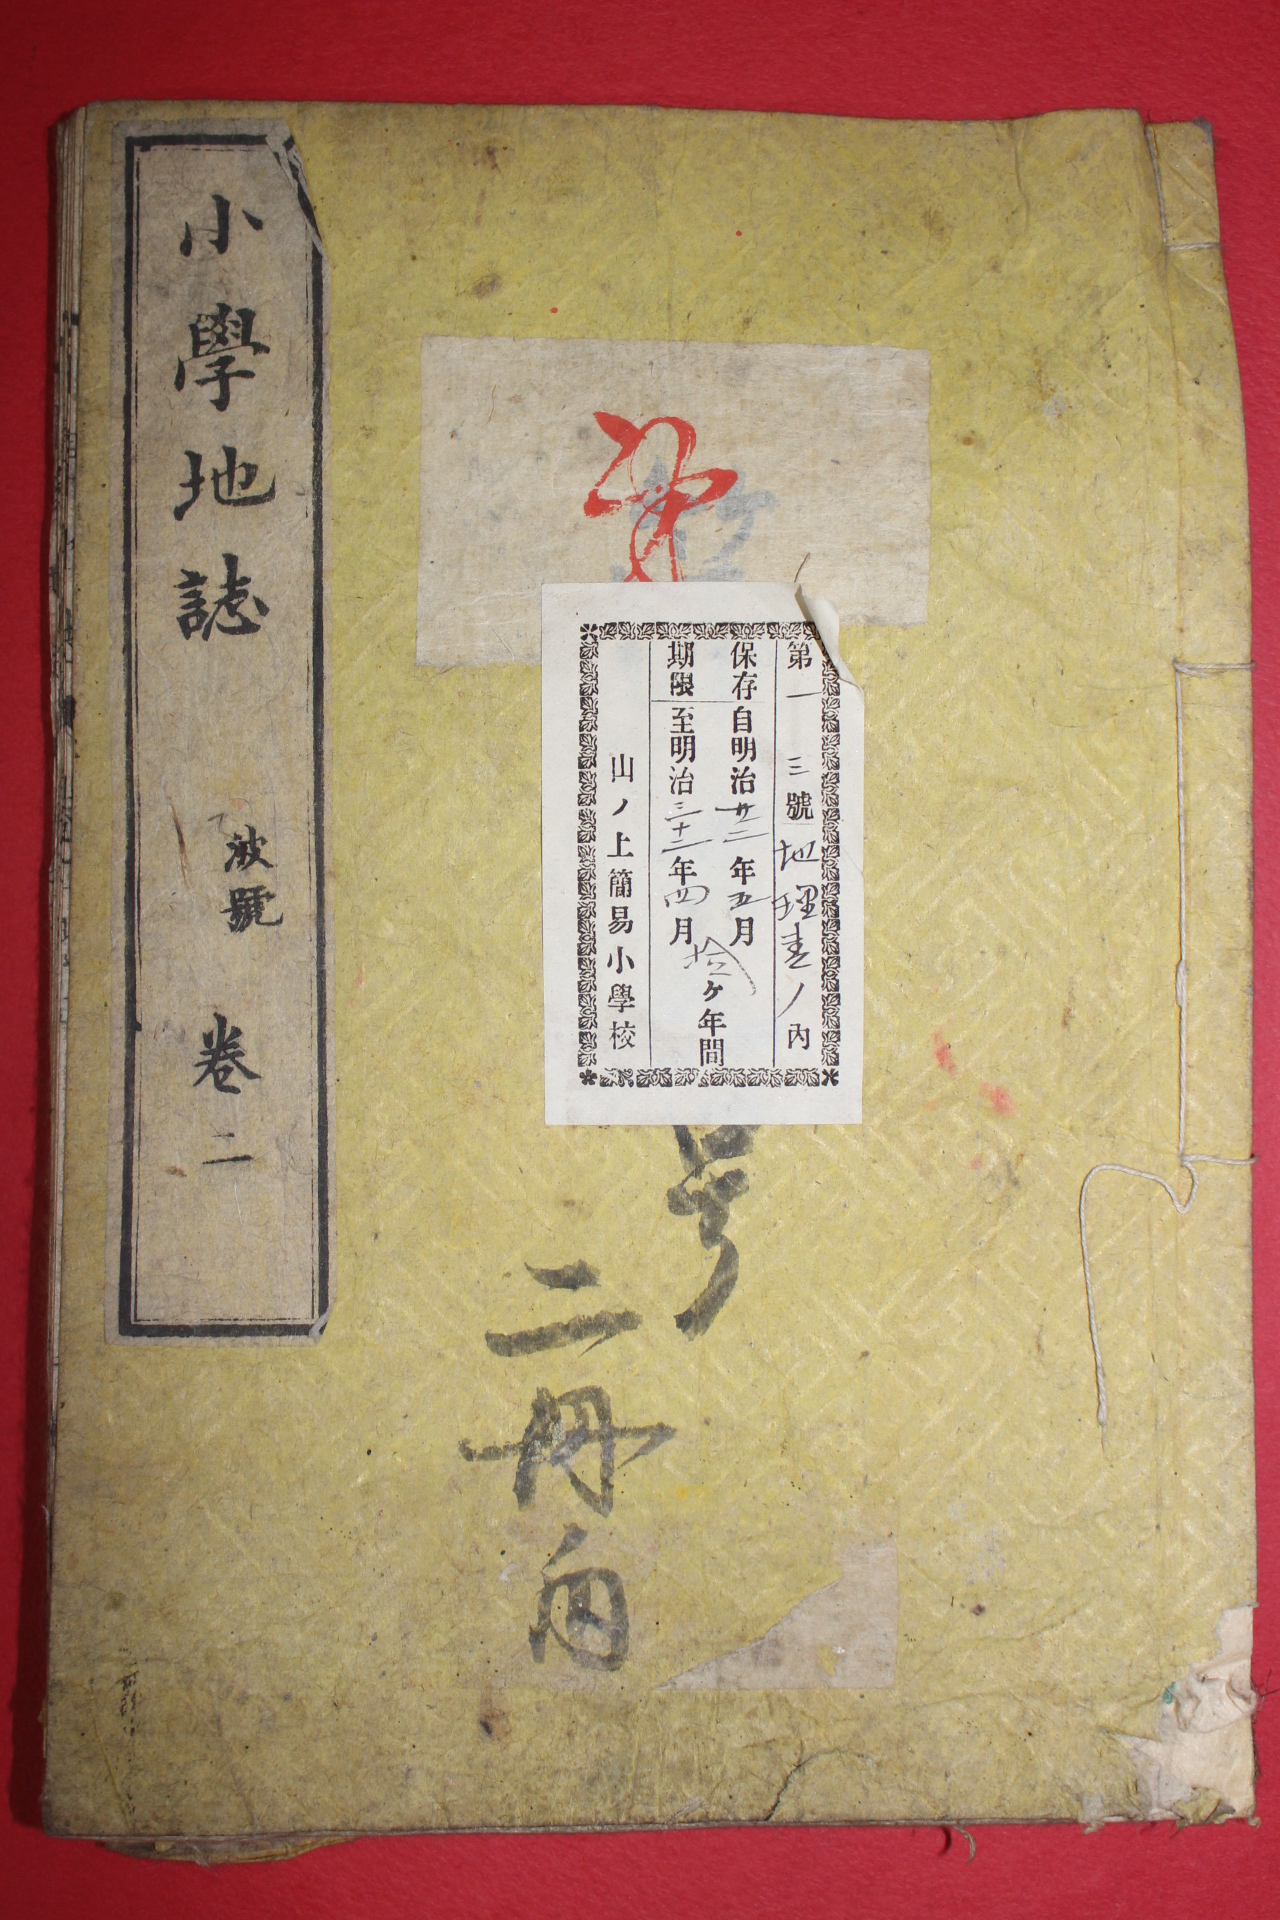 第一三號地理壹ノ內
保存期限
自明治廿二年五月
至明治三十二年四月
拾ヶ年間
山ノ上簡易小學校
号
二冊内
小學地誌 波號 卷二